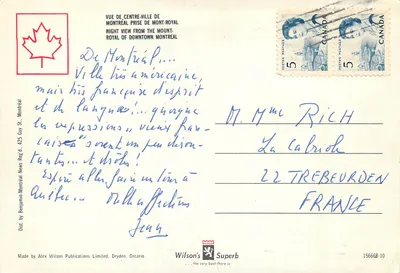 VUE DE CENTRE-VILLE DE
MONTRÉAL PRISE DE MONT-ROYAL
NIGHT VIEW FROM THE MOUNT-
ROYAL OF DOWNTOWN MONTRÉAL
De Montréal....
Ville très américaine,
mais très française d'esprit
et de langue!... quoique
les expressions "vieux fran-
çais" soient un peu déson-
tantes... et drôles!
Espère aller faire un tour à
Québec...
Jean
M. Mme RICH
La Cabriole
22 TREBEURDEN
FRANCE
5
CANADA
5
CANADA
Dist. by Benjamin Montréal News Reg'd. 425 Guy St., Montréal
Made by Alex Wilson Publications Limited, Dryden, Ontario
Wilson's Superb
...the very best there is